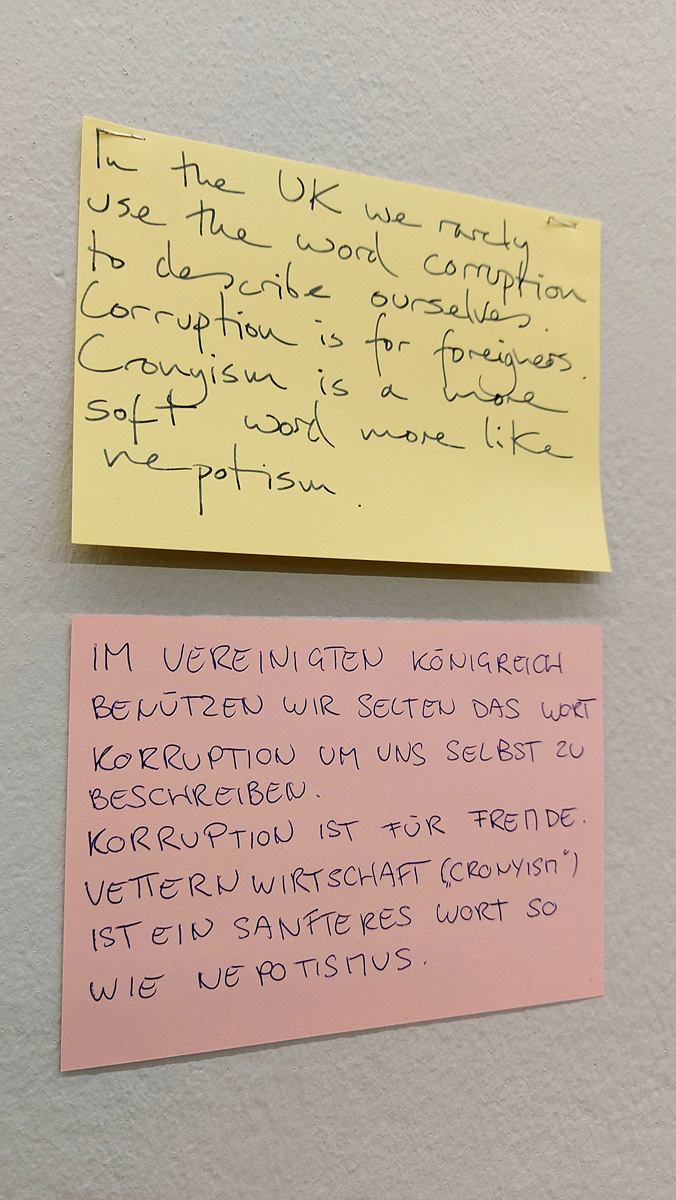 In the UK we rarely
use the word corruption
to describe ourselves.
Corruption is for foreigners.
Cronyism is a more
soft word more like
nepotism.
IM VEREINIGTEN KÖNIGREICH
BENÜTZEN WIR SELTEN DAS WORT
KORRUPTION UM UNS SELBST ZU
BESCHREIBEN.
KORRUPTION IST FÜR FREMDE.
VETTERNWIRTSCHAFT („CRONYISM“)
IST EIN SANFTERES WORT SO
WIE NEPOTISMUS.